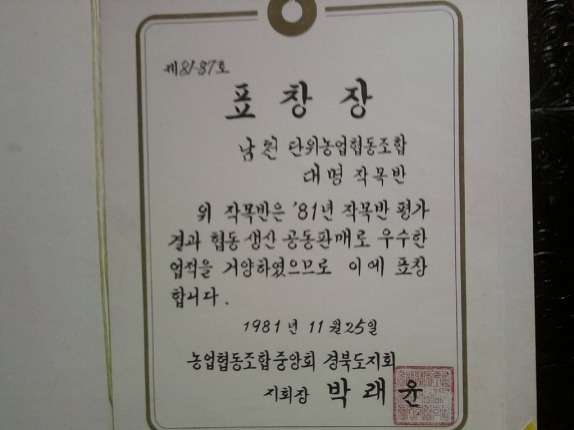 제81-87호
표창장
남천 단위농업협동조합
대명 작목반
위 작목반은 '81년 작목반 평가
결과 협동생산 공동판매로 우수한
업적을 거양하였으므로 이에 표창
합니다.
1981년 11월 25일
농업협동조합중앙회 경북도지회
지회장 박래윤